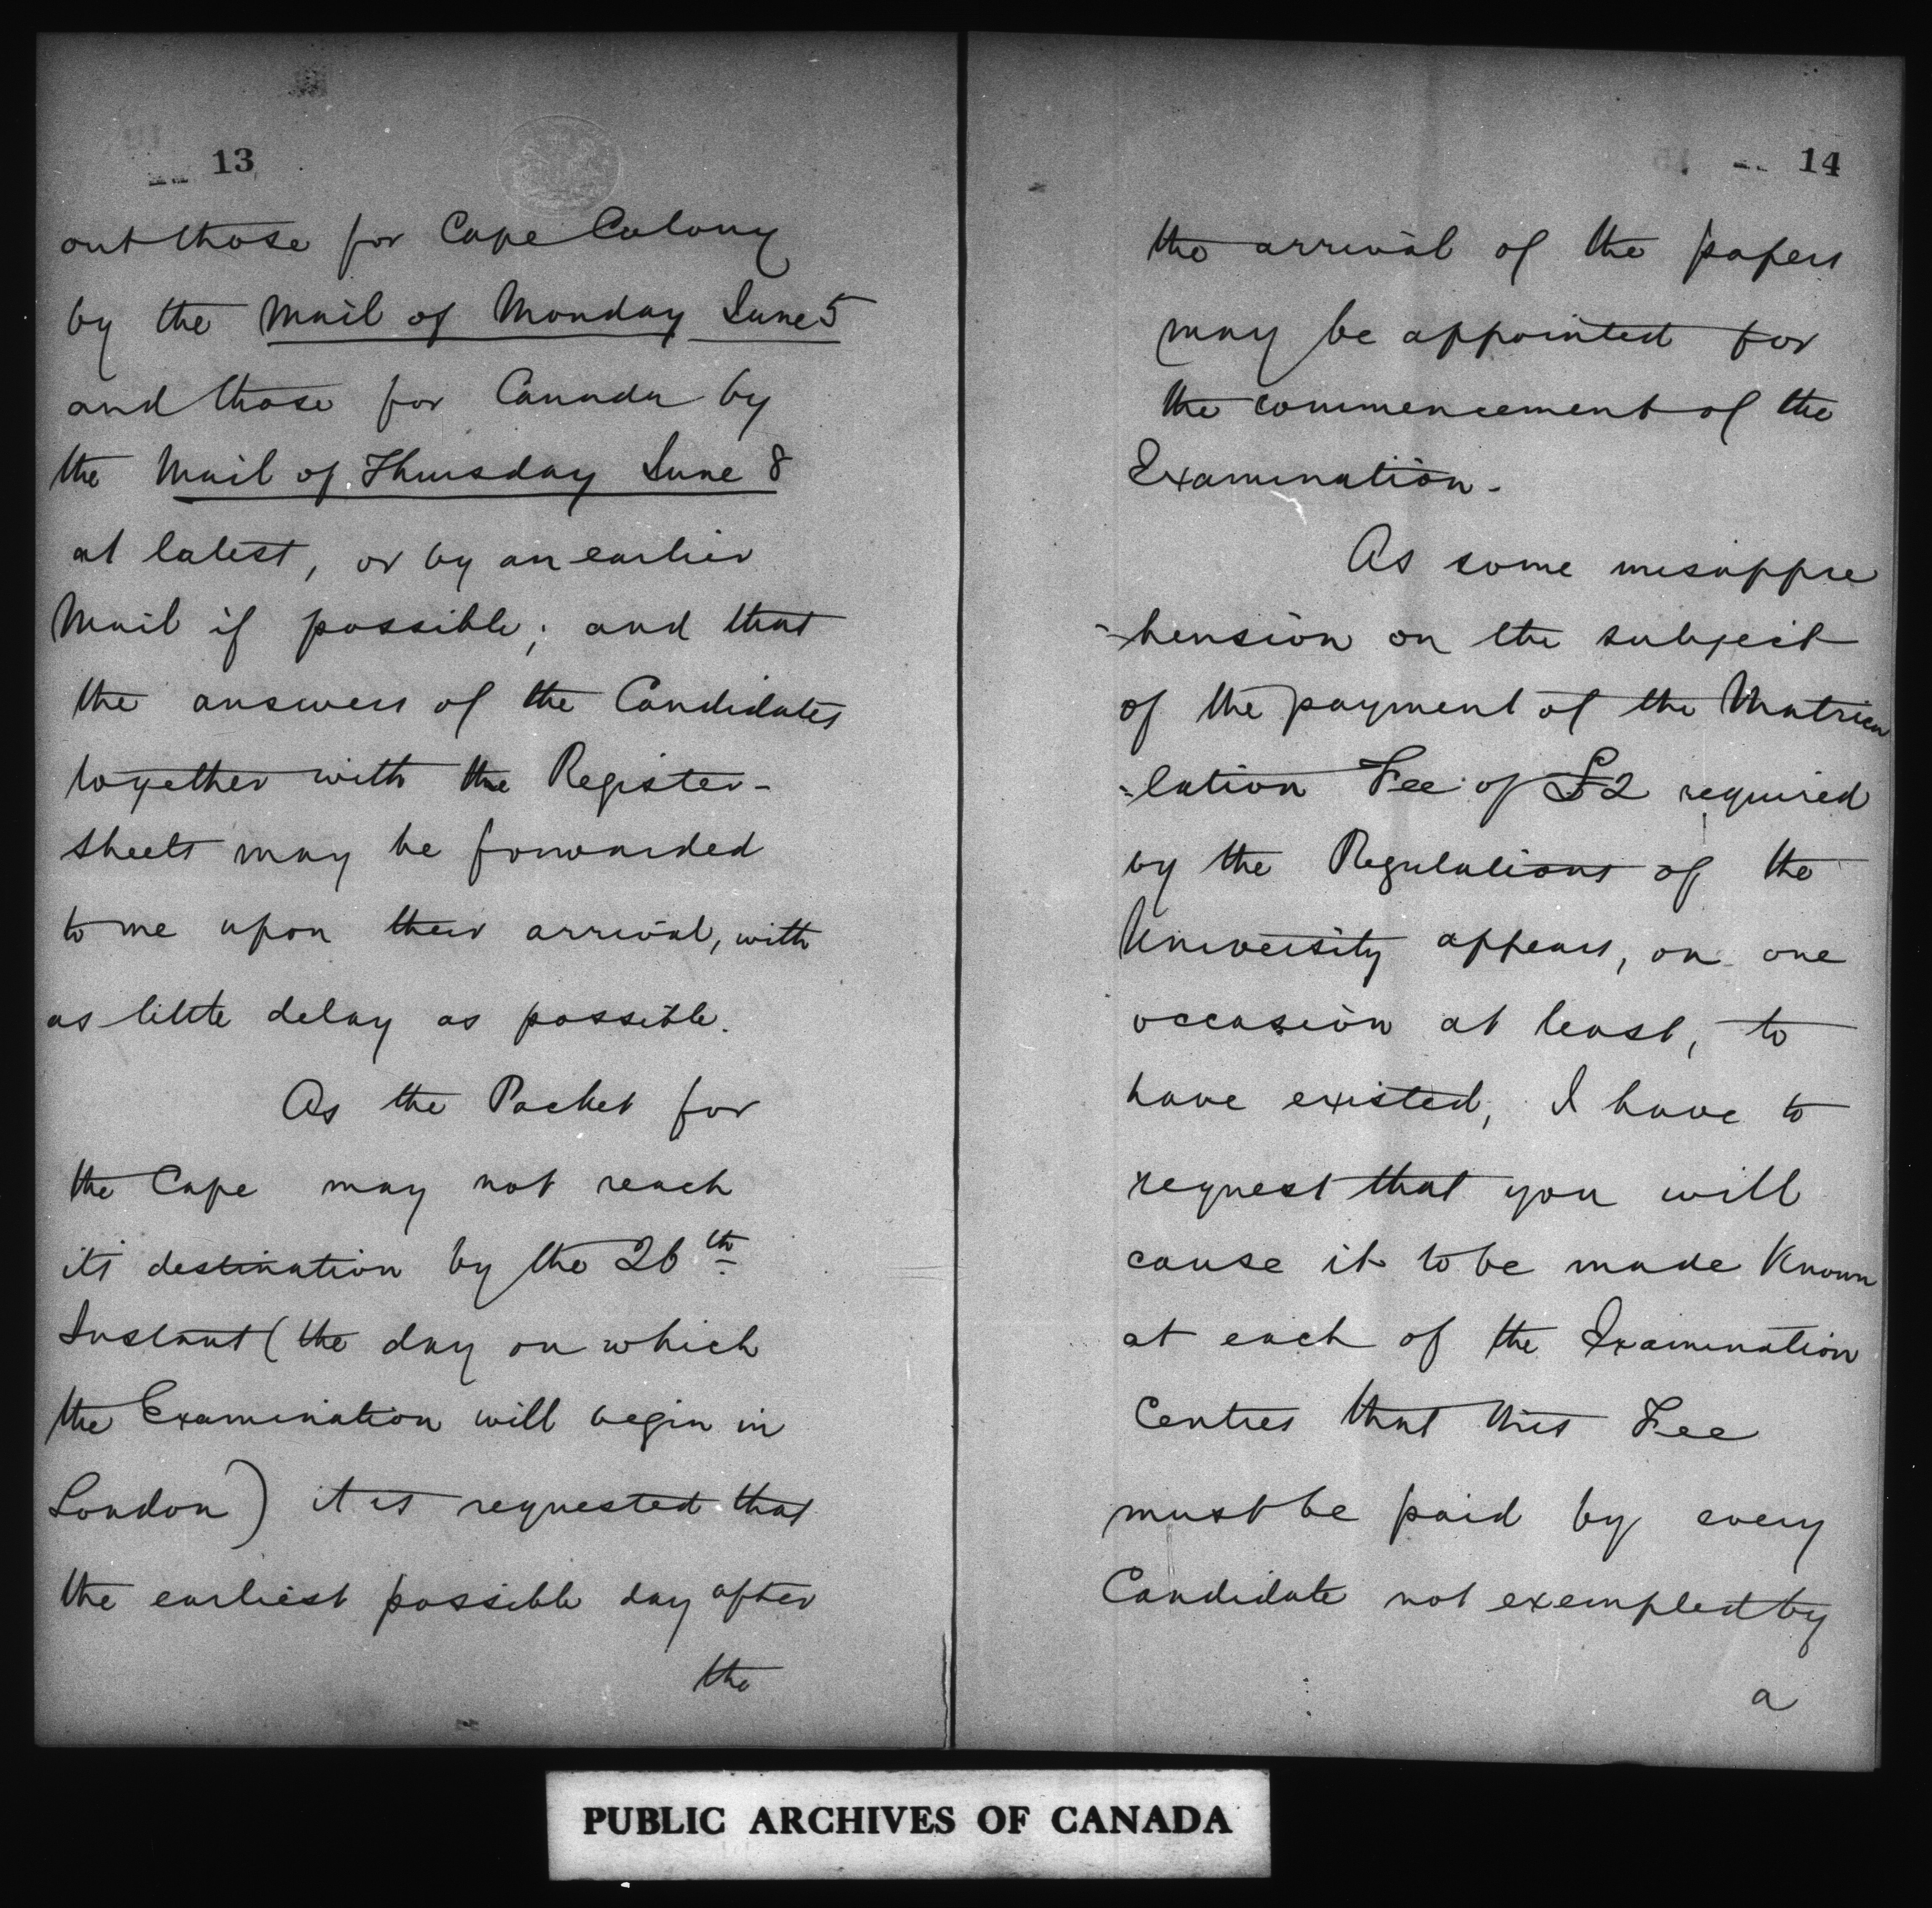 13
out those for Cape Colony
by the Mail of Monday June 5
and those for Canada by
the Mail of Thursday June 8
at latest, or by an earlier
Mail if possible; and that
the answers of the Candidates
together with the Register-
sheets may be forwarded
to me upon their arrival, with
as little delay as possible.
As the Packet for
the Cape may not reach
its destination by the 26th
Instant (the day on which
the Examination will begin in
London) it is requested that
the earliest possible day after
the
14
the arrival of the papers
may be appointed for
the commencement of the
Examination.
As some misappre
-hension on the subject
of the payment of the Matricu
-lation Fee of £2 required
by the Regulations of the
University appears, on one
occasion at least, to
have existed, I have to
request that you will
cause it to be made Known
at each of the Examination
Centres that this Fee
must be paid by every
Candidate not exempted by
a
PUBLIC ARCHIVES OF CANADA